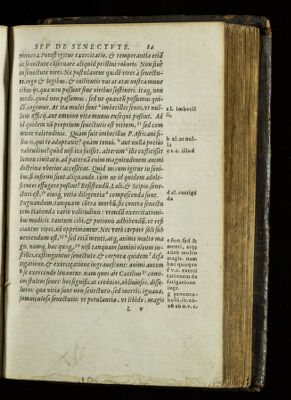 SEV DE SENECTVTE. 84
pioneva. Potest igitur exercitatio, & temperantia etiā
in senectute conseruare aliquid pristini roboris. Non sunt
in senectute vires: Ne postulantur quidē vires à senectu-
te. ergo & legibus, & institutis vacat ætas nostra mune
ribus iis, quæ non possunt sine viribus sustineri. itaq; non
modo, quod non possumus, sed ne quantū possumus qui-
dē, cogimur. At ita multi sunt imbecilles senes, vt nul-
lum officij, aut omnino vitæ munus exequi possint. At
id quidem nō proprium senectutis est vitium, sed com-
mune valitudinis. Quàm fuit imbecillus P. Africani fi-
lius is, qui te adoptauit? quàm tenui, aut nulla potius
valitudine? quod nisi ita fuisset, alterum ille extitisset
lumen ciuitatis. ad paternā enim magnitudinem animi
doctrina vberior accesserat. Quid mirum igitur in seni-
bus, si infirmi sunt aliquando, cùm ne id quidem adoles-
centes effugere possint? Resistendū, Læli, & Scipio, sene-
ctuti est, eiusq; vitia diligentia compensanda sunt.
Pugnandum, tanquam cōtra morbū, sic contra senectu
tem. Habenda ratio valitudinis: vtendū exercitationi-
bus modicis. tantum cibi, & potionis adhibendū, vt refi
ciantur vires, nō opprimantur. Nec verò corpori soli sub
ueniendum est, sed menti, atq; animo multo ma
gis. nanq; hæc quoq;, nisi tanquam lumini oleum in-
stilles, extinguuntur senectute. & corpora quidem defa
tigatione, & exercitatione ingrauescunt: animi autem
se exercendo leuantur. nam quos ait Cæcilius comi-
cos stultos senes: hos significat credulos, obliuiosos, disso-
lutos: quæ vitia sunt non senectutis, sed inertis, ignauæ,
somniculosæ senectutis. vt petulantia, vt libido, magis
L F
a l. imbecil
li.
b al. at nul-
la
c v.c. illud
d al. corrigē
da
e sunt. sed &
menti, atq;
adeo multo
magis. nam
hæc quoque
f v.c. exerci
tationum de
fatigatione
inge.